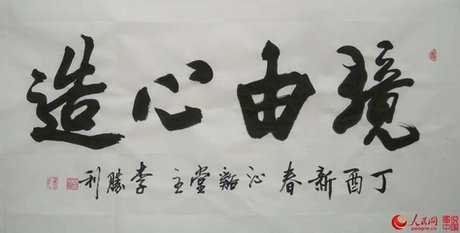 境由心造
丁酉新春 沁谿堂主 李勝利
人民网
people.cn
图说
中国